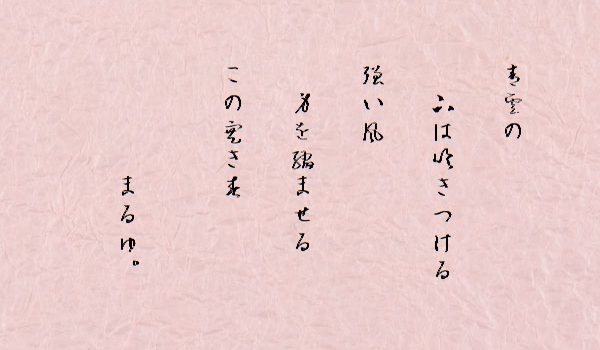 青雲の
は吹きつける
強い風
身を縮ませる
この寒き春
まるゆ。